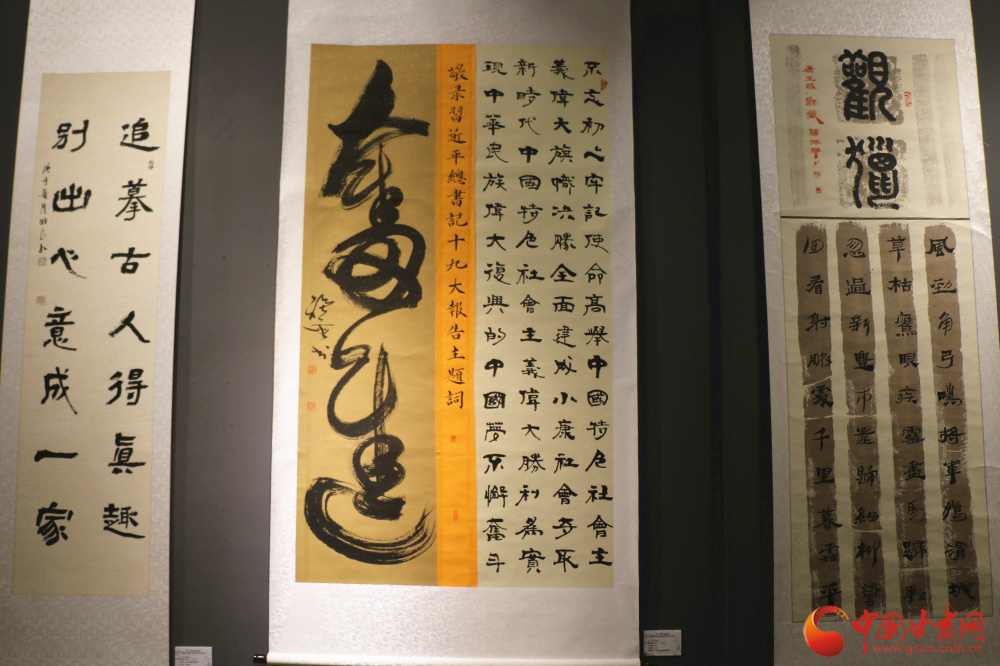 追摹古人得眞趣
别出心意成一家
不忘初心牢記使命高舉中國特色社會主
義偉大旗幟決勝全面建成小康社會奪取
新時代中國特色社會主義偉大勝利為實
現中華民族偉大復興的中國夢不懈奮斗
敬录習近平總書記十九大報告主題詞
奮進
觀獵
風勁角弓鳴將軍獵渭城
草枯鷹眼疾雪盡馬蹄輕
忽過新豐市還歸細柳營
回看射雕處千里暮雲平
中国甘肃网
www.gscn.com.cn